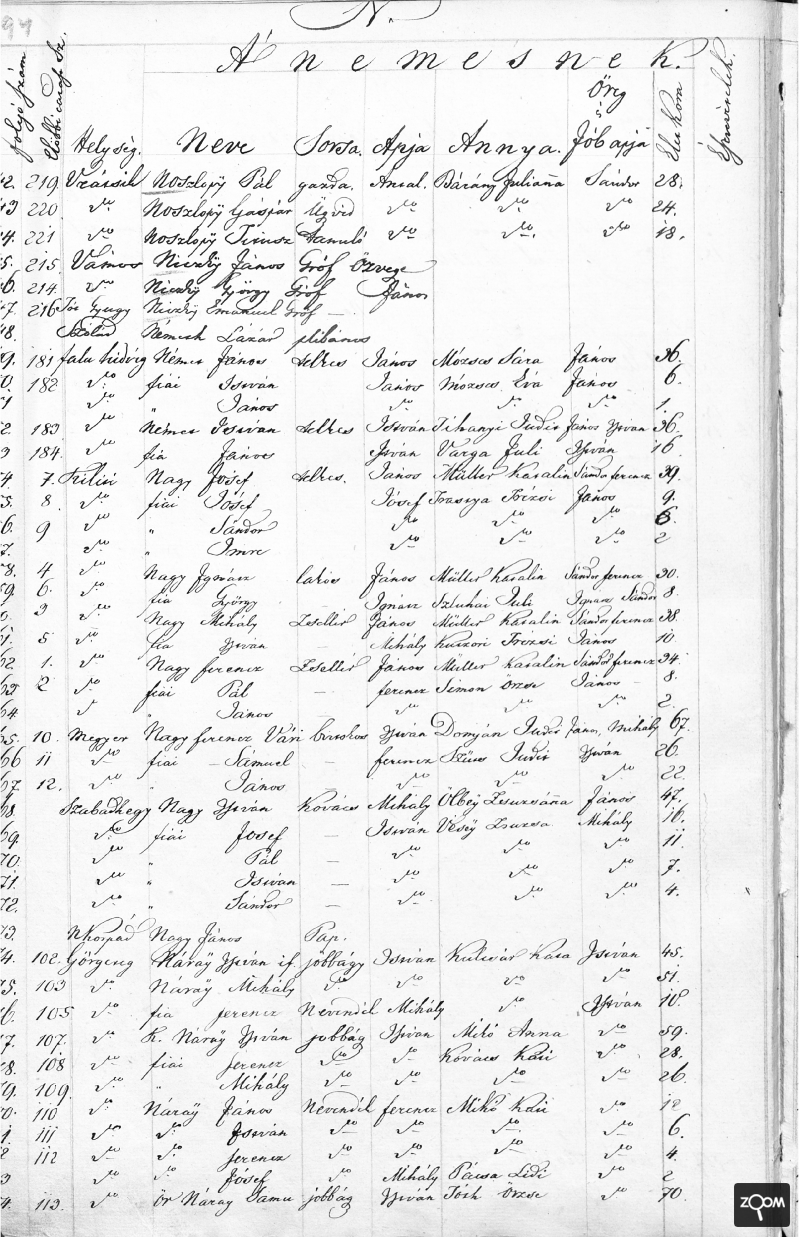 94
N.
A' nemesnek.
folyó szám
Előbbi
Helység. Neve Sorsa. Apja Annya. Öreg v. Jóbapja Elet kora
2. 219. Noszlopÿ Pál gazda. Antal. Bárány Julianna Sándor 28.
3 220 do Noszlopÿ Gáspár Ügvéd do do do 24.
4. 221 do Noszlopÿ Titusz Tanuló do do. do 18.
5. 215. Vámos Niczkÿ János Gróf Özvege
6. 214 do Niczkÿ György Gróf János
7. 216 Niczkÿ Emanuel Gróf —
8. Németh Lázár plibános
9. 181 falu hidvég Német János telkes János Mózses Sára János 36.
0. 182 do. fiái István János Mózses Éva János 6.
1 do " János do do do 1.
2. 183 do Német István telkes István Tihanyi Judit János István 36.
3 184. do fia János István Varga Juli István 16
4 7. Kiliti Nagy Jósef telkes. János Müller Katalin Sándor ferencz 39.
5. 8. do fiái Jósef Jósef János 9.
6. 9 do " Sándor do do do 6.
7. do " Imre do do do 2
8. 4 do Nagy Ignácz lakos János Müller Katalin Sándor ferencz 30.
59 6. do fia György — Ignácz Szluhai Juli Ignácz Sándor 8
0. 3 do Nagy Mihály Zsellér János Müller Katalin Sándor ferencz 38.
1. 5 do fia István — Mihály János 10.
62 1. do Nagy ferencz Zsellér János Müller Katalin Sándor ferencz 34
63 2 do fiái Pál — ferencz Simon Örzse János 8.
64 do " János — do do do 2.
65. 10. Megyer Nagy ferencz Vári birtokos István Domján Judit János, Mihály 67.
66 11 do fiái — Sámuel — ferencz Szücs Judit István 26.
67 12. do " János do do do 22.
68. Szabadhegy Nagy István Kovács Mihály Zsuzsána János 47.
69. do fiái Jósef — István Vésÿ Zsuzsa Mihály 16.
70. do " Pál — do do do 11
71. do " István — do do do 7.
72. do " Sándor do do do 4.
73. Nagy János Pap.
4. 102. Görgeteg Náraÿ István if. jobbágy István Kultsár Kata István 45.
5. 103 do Náraÿ Mihály do do do do 51.
6. 105 do fia ferencz Nevendék Mihály do István 18.
7. 107. do K. Náraÿ István jobbág István Mikó Anna do 59.
8. 108 do fiái ferencz do do Kovács Kati do 28.
9. 109. do " Mihály do do do do 26.
0. 110 do Náraÿ János Nevendék ferencz Mikó Kati do 12
1. 111 do do. István do do do do 6.
2 112 do do ferencz do do do do 4.
3 do do Jósef do Mihály Pácsa Lidi do 2
4. 113. do ör Náray Samu jobbág István Tóth Örzse do 70.
ZOOM